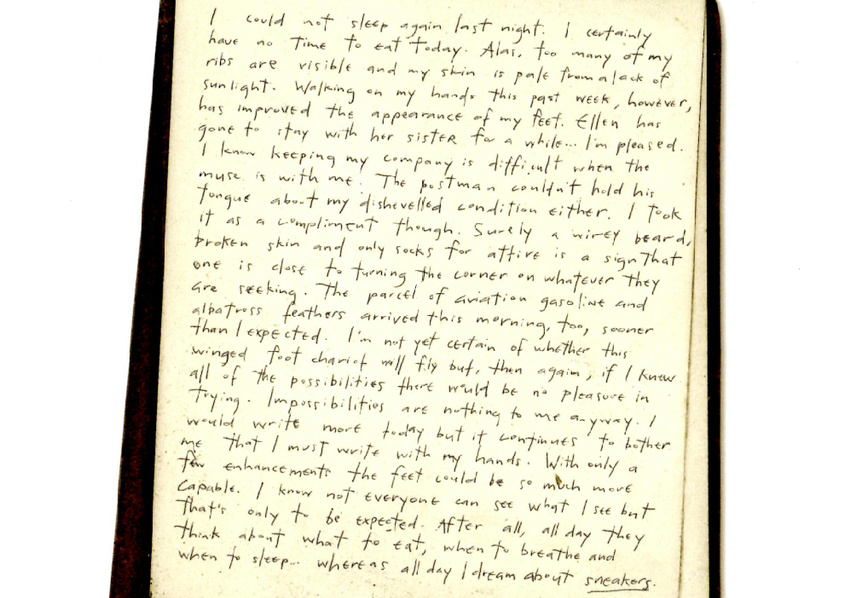 I could not sleep again last night. I certainly
have no time to eat today. Alas, too many of my
ribs are visible and my skin is pale from a lack of
sunlight. Walking on my hands this past week, however,
has improved the appearance of my feet. Ellen has
gone to stay with her sister for a while... I'm pleased.
I know keeping my company is difficult when the
muse is with me. The postman couldn't hold his
tongue about my dishevelled condition either. I took
it as a compliment though. Surely a wirey beard,
broken skin and only socks for attire is a sign that
one is close to turning the corner on whatever they
are seeking. The parcel of aviation gasoline and
albatross feathers arrived this morning, too, sooner
than I expected. I'm not yet certain of whether this
winged foot chariot will fly but, then again, if I knew
all of the possibilities there would be no pleasure in
trying. Impossibilities are nothing to me anyway. I
would write more today but it continues to bother
me that I must write with my hands. With only a
few enhancements the feet could be so much more
capable. I know not everyone can see what I see but
that's only to be expected. After all, all day they
think about what to eat, when to breathe and
when to sleep... whereas all day I dream about sneakers.